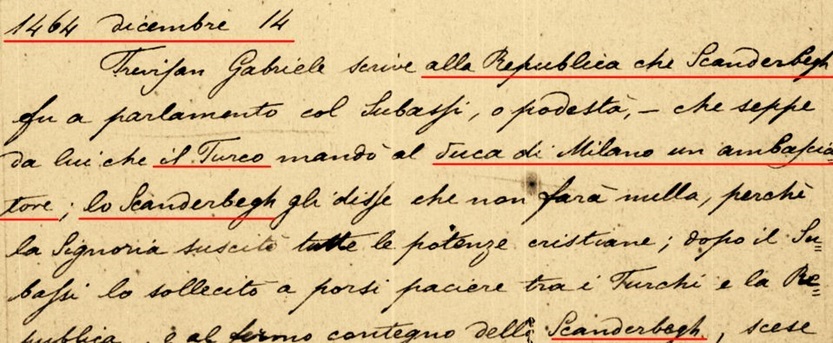 1464 dicembre 14
Trevisan Gabriele scrive alla Republica che Scanderbegh
fu a parlamento col Subassi, o podestà, – che seppe
da lui che il Turco mandò al Duca di Milano un ambascia=
tore; lo Scanderbegh gli disse che non farà nulla, perchè
la Signoria suscitò tutte le potenze cristiane; dopo il Su=
bassi lo sollecitò a porsi paciere tra i Turchi e la Re=
pubblica, e al fermo contegno dello Scanderbegh, scese